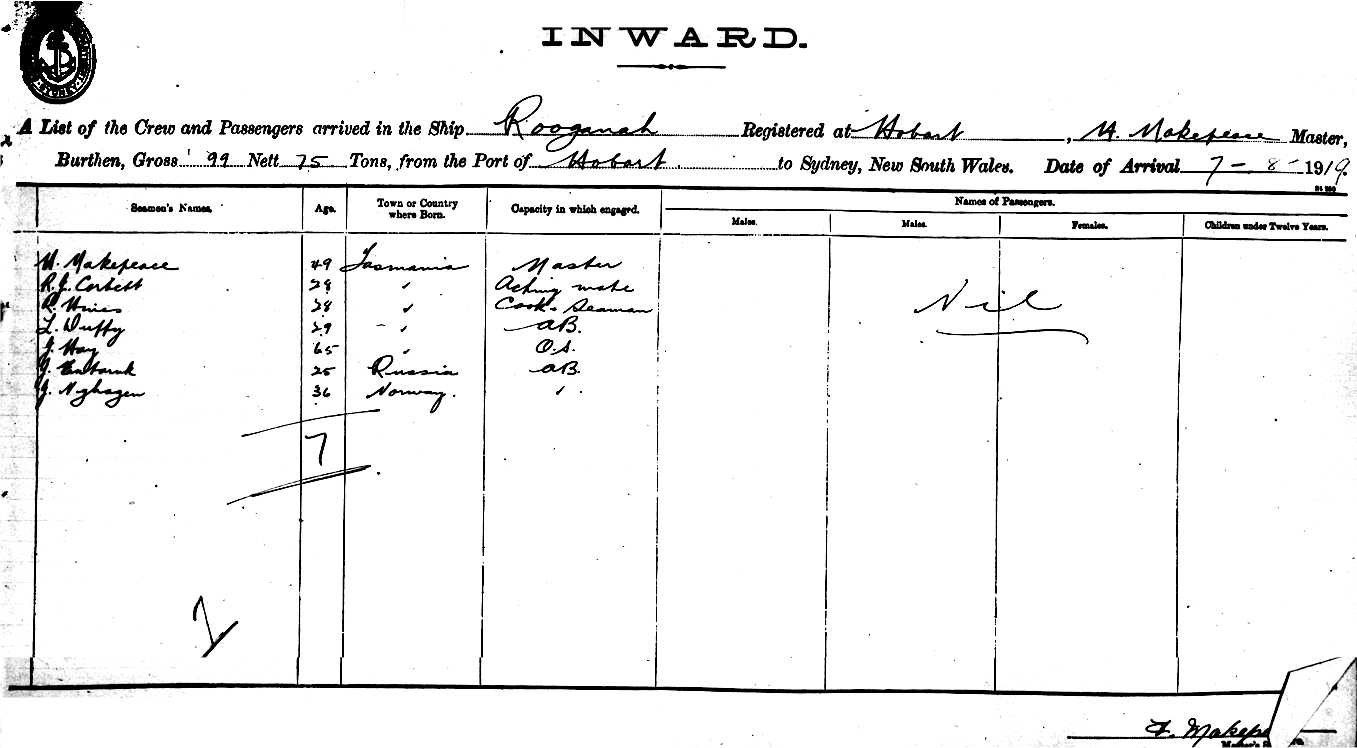 SYDNEY
INWARD.
A List of the Crew and Passengers arrived in the Ship Rooganah Registered at Hobart, H. Makepeace Master,
Burthen, Gross 99 Nett 75 Tons, from the Port of Hobart to Sydney, New South Wales. Date of Arrival 7 - 8 - 1919.
Seamen's Names. Age. Town or Country where Born. Capacity in which engaged. Names of Passengers.
Males. Males. Females. Children under Twelve Years.
H. Makepeace 49 Tasmania Master
R.J. Corbett 28 " Acting mate
R. Hines 28 " Cook & Seaman
Nil
L. Duffy 29 - " AB.
J. Hay 65 " O.S.
J. 25 Russia AB.
J. 36 Norway. " .
7
Makepe
Master's S